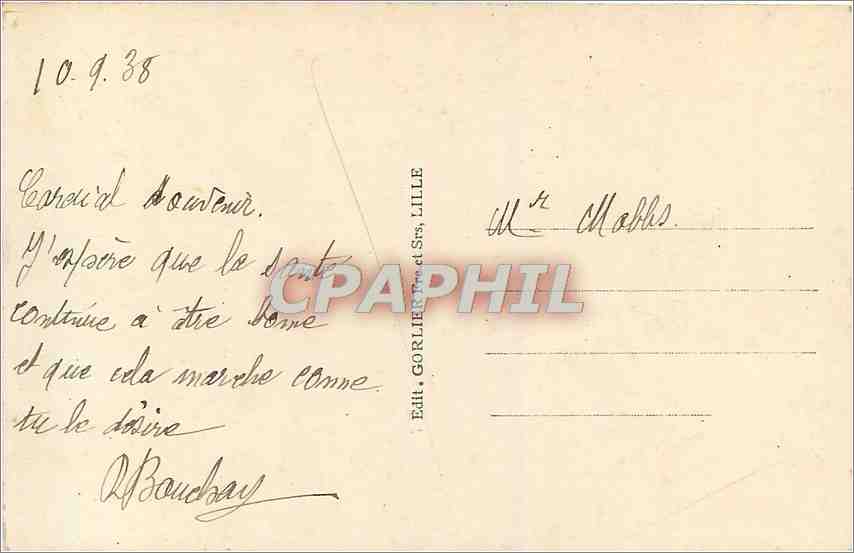 10.9.38
Cordial souvenir.
J'espère que la santé
continue à être bonne
et que cela marche comme
tu le désire
RBouchay
Edit. GORLIER Fre et Srs, LILLE
Mr Mabbs.
CPAPHIL